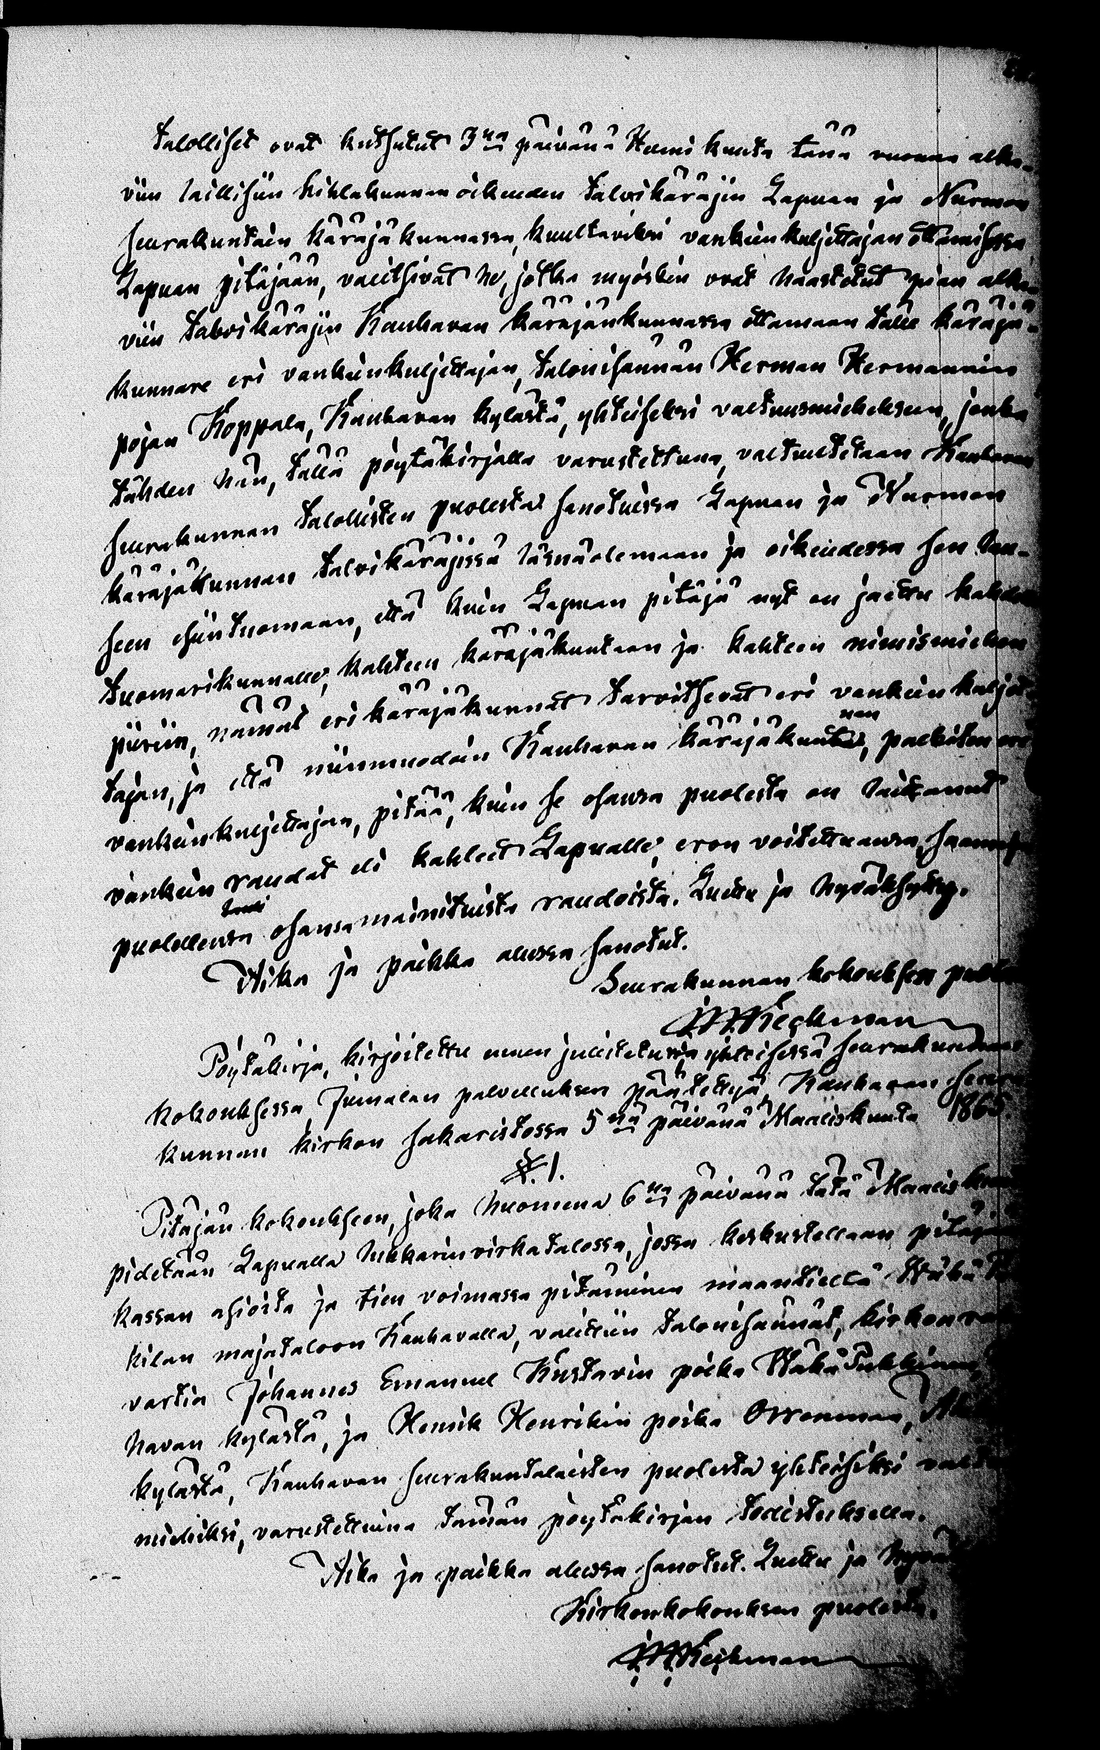 talolliset ovat kutsutut 3na päivänä Helmi kuuta tänä vuonna alka-
viin laillisiin kihlakunnan oikeuden talvikäräjiin Lapuan ja Nurmon
seurakuntain käräjäkunnassa, kuultaviksi vankiinkuljettajan ottamisessa
Lapuan pitäjään, valitsivat he, jotka myöskin ovat haastetut pian alka-
viin talvikäräjiin Kauhavan käräjänkunnassa ottamaan talle käräjä-
kunnare eri vankiinkuljettajan, talonisännän Herman Hermannin
pojan Koppala, Kauhavan kylästä, yhteiseksi valtuusmieheksensä, jonka
tähden hän, tällä pöytäkirjalla varustettuna, valtuutetaan Kauhavan
seurakunnan talollisten puolesta sanotuissa Lapuan ja Nurmon
käräjäkunnan talvikäräjissä läsnäolemaan ja oikeudessa sen lau-
seen esiintuomaan, että kuin Lapuan pitäjä nyt on jaettu kahden
tuomarikunnalle, kahteen käräjäkuntaan ja kahteen nimismiehen
piiriin, nämät eri käräjäkunnat tarvitsevat eri vankiinkuljet-
tajan, ja että niinmuodoin Kauhavan käräjäkunnan, palkiten eri
vankiinkuljettajan, pitää, kuin se osansa puolesta on laittanut
vankiin raudat eli kahleet Lapualle, eron voitettuansa, saaman
puolellensa osansa mainituista raudoista. Luettu ja hyväksytty.
Aika ja paikka alussa sanotut.
Seurakunnan kokouksen puolesta
Pöytäkirja, kirjoitettu ennen julistetussa yhteisessä seurakunnan
kokouksessa Jumalan palveluksen päätettyä Kauhavan seura-
kunnan kirkon sakaristossa 5nä päivänä Maaliskuuta 1865.
§. 1.
Pitäjän kokoukseen, joka huomena 6na päivänä tätä Maaliskuuta
pidetään Lapualla lukkarin virkatalossa, jossa keskustellaan pitäjän
kassan asioista ja tien voimassa pitäminen maantiellä Wähä
kilan majataloon Kauhavalla, valittiin talonisännät, kirkon
vartia Johannes Emanuel Kustavin poika Wähä
havan kylästä, ja Henrik Henrikin poika Orrenmaa,
kylästä, Kauhavan seurakuntalaisten puolesta yhteiseksi
miehiksi, varustettuina tämän pöytäkirjan todistuksella.
Aika ja paikka alussa sanotut. Luettu ja
Kirkonkokouksen puolesta.